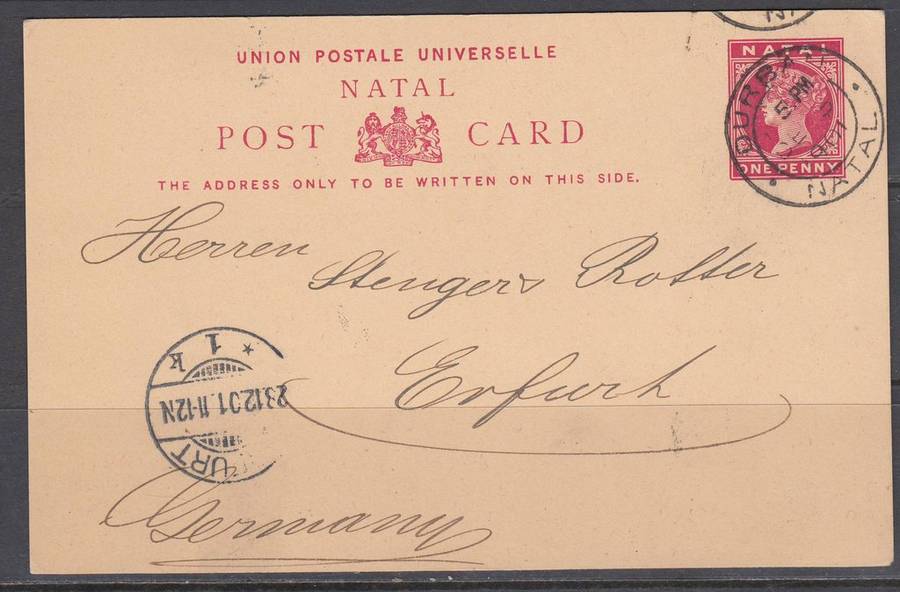 UNION POSTALE UNIVERSELLE
NATAL
POST CARD
THE ADDRESS ONLY TO BE WRITTEN ON THIS SIDE.
NATAL
ONE PENNY
DURBAN
5 PM
NATAL
Herren
Stengers Rotter
Erfurt
Germany
* 1 k
23.12.01.11-12N
URT